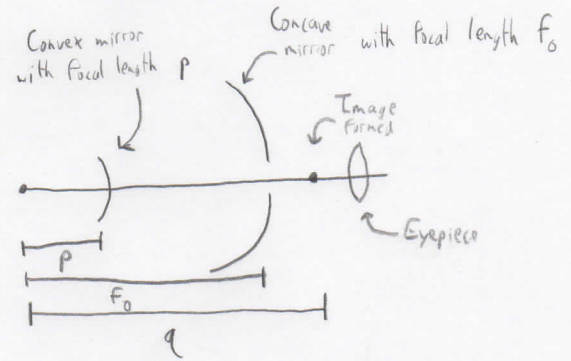 Convex mirror
with focal length p
Concave
mirror with focal length f₀
Image
formed
Eyepiece
p
f₀
q